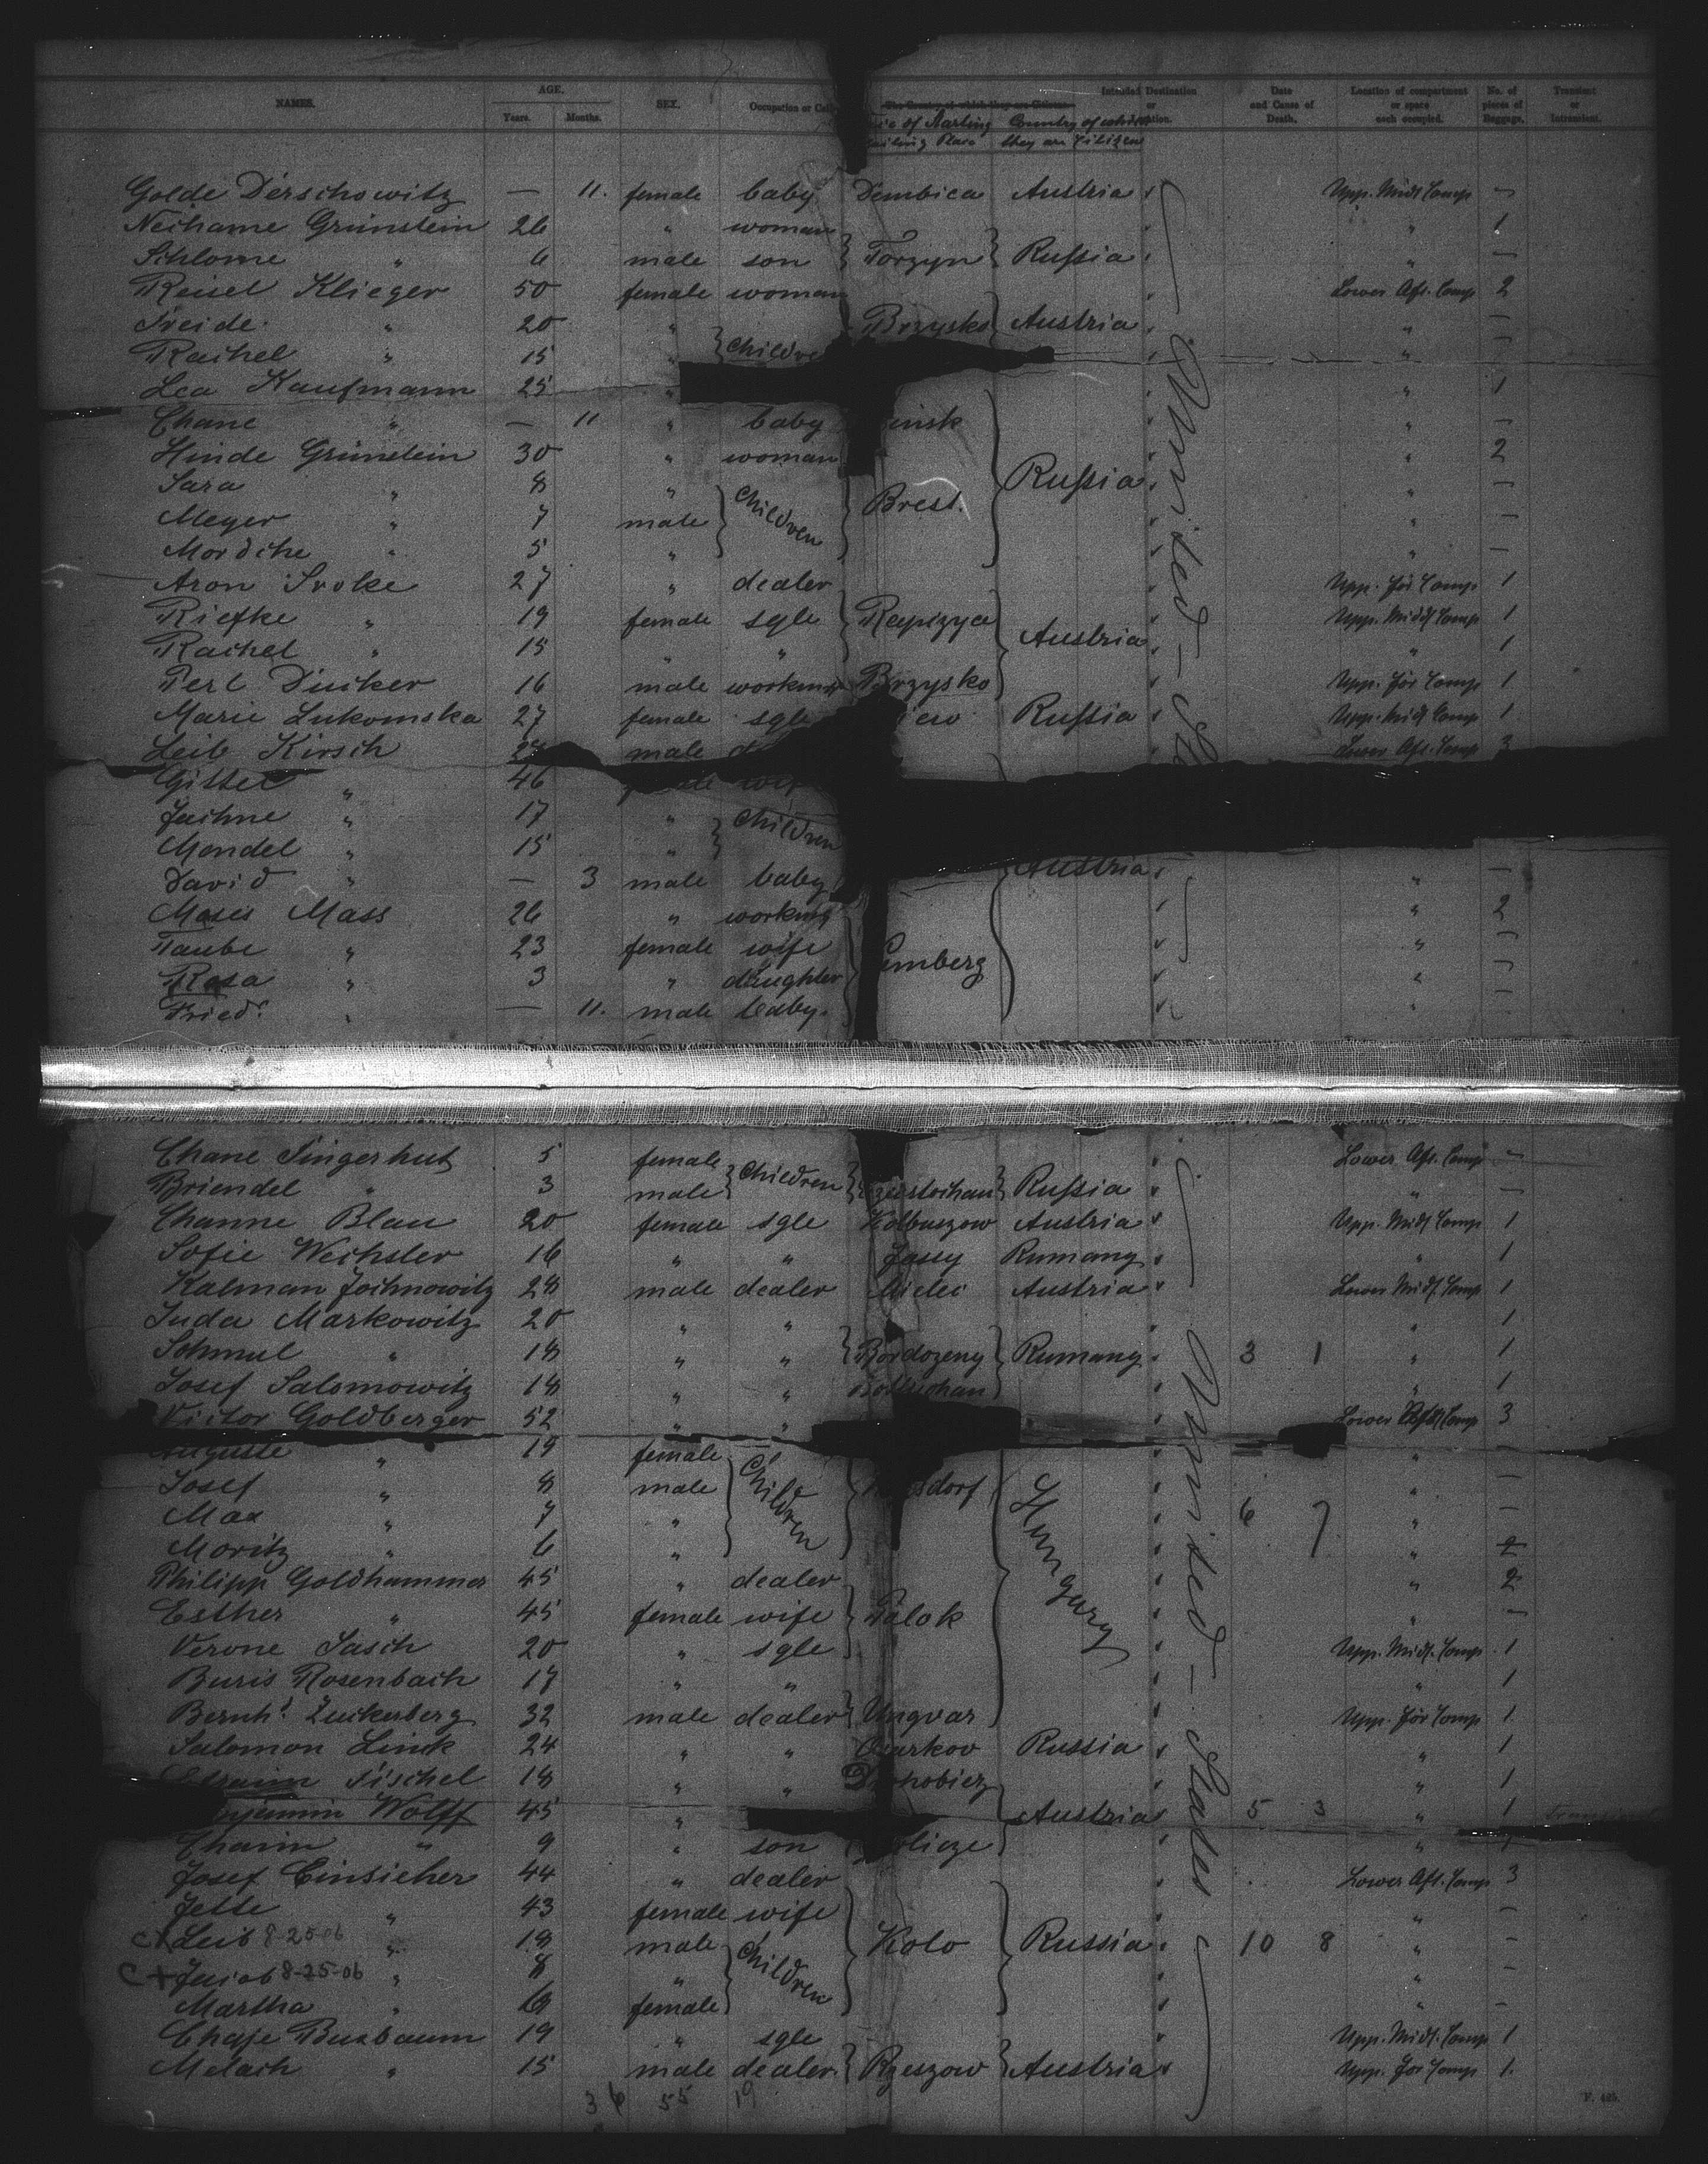 NAMES. AGE. SEX. Occupation or Intended Destination or Date and Cause of Death. Location of compartment or space each occupied. No. of pieces of Baggage. Transient or Intransient.
Years. Months. The Country of which they are Citizens.
of Starting Country of which
Place they are Citizen
Golde Derschowitz — 11. female baby Dembica Austria Upp. Midl Comp —
Nechame Grünstein 26 " woman " 1
Schlome " 6 male son Torzyn Rußia " —
Reisel Klieger 50 female woman Lower Aft. Comp 2
Freide " 20 " Brzysko Austria " —
Rachel " 15 " Children " —
Lea Kaufmann 25 " " 1
Chane " — 11 " baby insk " —
Hinde Grünstein 30 " woman " 2
Sara " 8 " Children Brest. Rußia " —
Meyer " 7 male " —
Mordche " 5 " " —
Aron Sroke 27 " dealer Upp. For Comp 1
Riefke " 19 female sgle Austria Upp. Midl Comp 1
Rachel " 15 " " " 1
Perl Ducker 16 male Brzysko Upp. For Comp 1
Marie Lukomska 27 female sgle Rußia Upp. Midl Comp 1
Leib Kirsch male Lower Aft. Comp 3
Gittel " 46
Jachne " 17 " Children
Mendel " 15 "
David " — 3 male baby Austria " —
Moses Mass 26 " " 2
Taube " 23 female wife emberg " —
Rosa " 3 " daughter " —
Fried. " — 11. male baby.
United States
Chane Singerhut 5 female Children Lower Aft. Comp —
Briendel " 3 male Rußia " —
Channe Blau 20 female sgle Kolbuszow Austria Upp. Midl Comp 1
Sofie Wechsler 16 " " Jassy Rumany " 1
Kalman Jochnowitz 28 male dealer Mielec Austria Lower Midl. Comp 1
Juda Markowitz 20 " " " 1
Schmul " 18 " " Rumany 3 1 " 1
Josef Salomowitz 18 " " " 1
Victor Goldberger 52 " " Lower Aft Comp 3
Auguste " 19 female Children " —
Josef " 8 male sdorf Hungary " —
Max " 7 " 6 7 " —
Moritz " 6 " "
Philipp Goldhammer 45 " dealer " 2
Esther " 45 female wife " —
Verone Sasch 20 " sgle Upp. Midl. Comp 1
Buris Rosenbach 17 " " " 1
Bernht. Zuckerberg 32 male dealer Ungvar Upp. For Comp 1
Salomon Link 24 " " Russia " 1
Fischel 18 " " " 1
Wolff 45 " Austria 5 3 " 1
Chaim " 9 " son
Josef Einsicher 44 " dealer Lower Aft. Comp 3
Jette " 43 female wife " —
c+ Leib 8-25-06 " 18 male Children Kolo Russia 10 8 " —
c+ Jacob 8-25-06 " 8 " "
Martha " 6 female " —
Chaje Buxbaum 19 " sgle Upp. Midl. Comp 1
Melach " 15 male dealer. Rzeszow Austria Upp. For Comp 1.
United — States
36 55 19